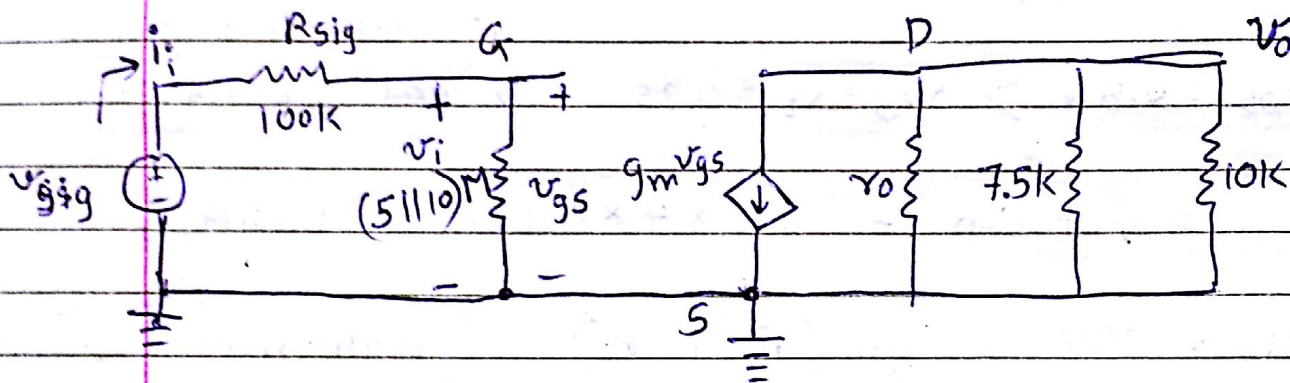 i_i Rsig G D v_o
100K + +
v_sig v_i (5||10)M v_gs g_m v_gs r_o 7.5K 10K
+ -
- -
S